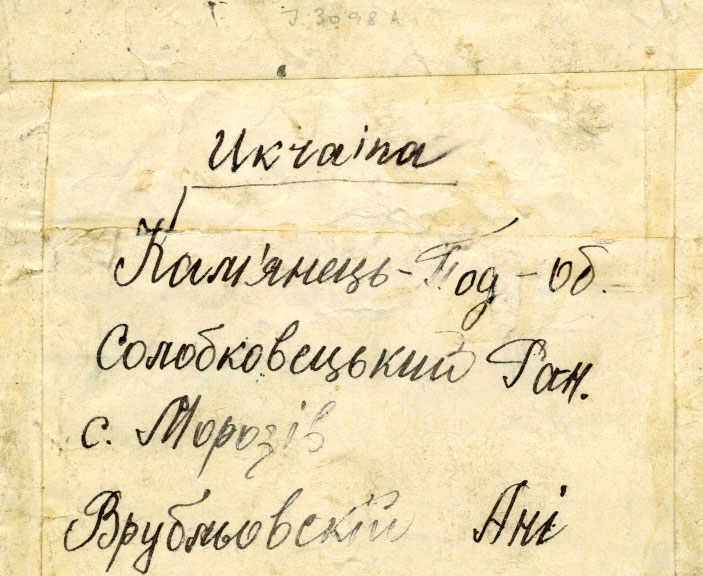 J 3098 A
Украіна
Кам'янець-Под-об.
Солобковецький Ран.
с. Морозів
Врубльовскій Ані